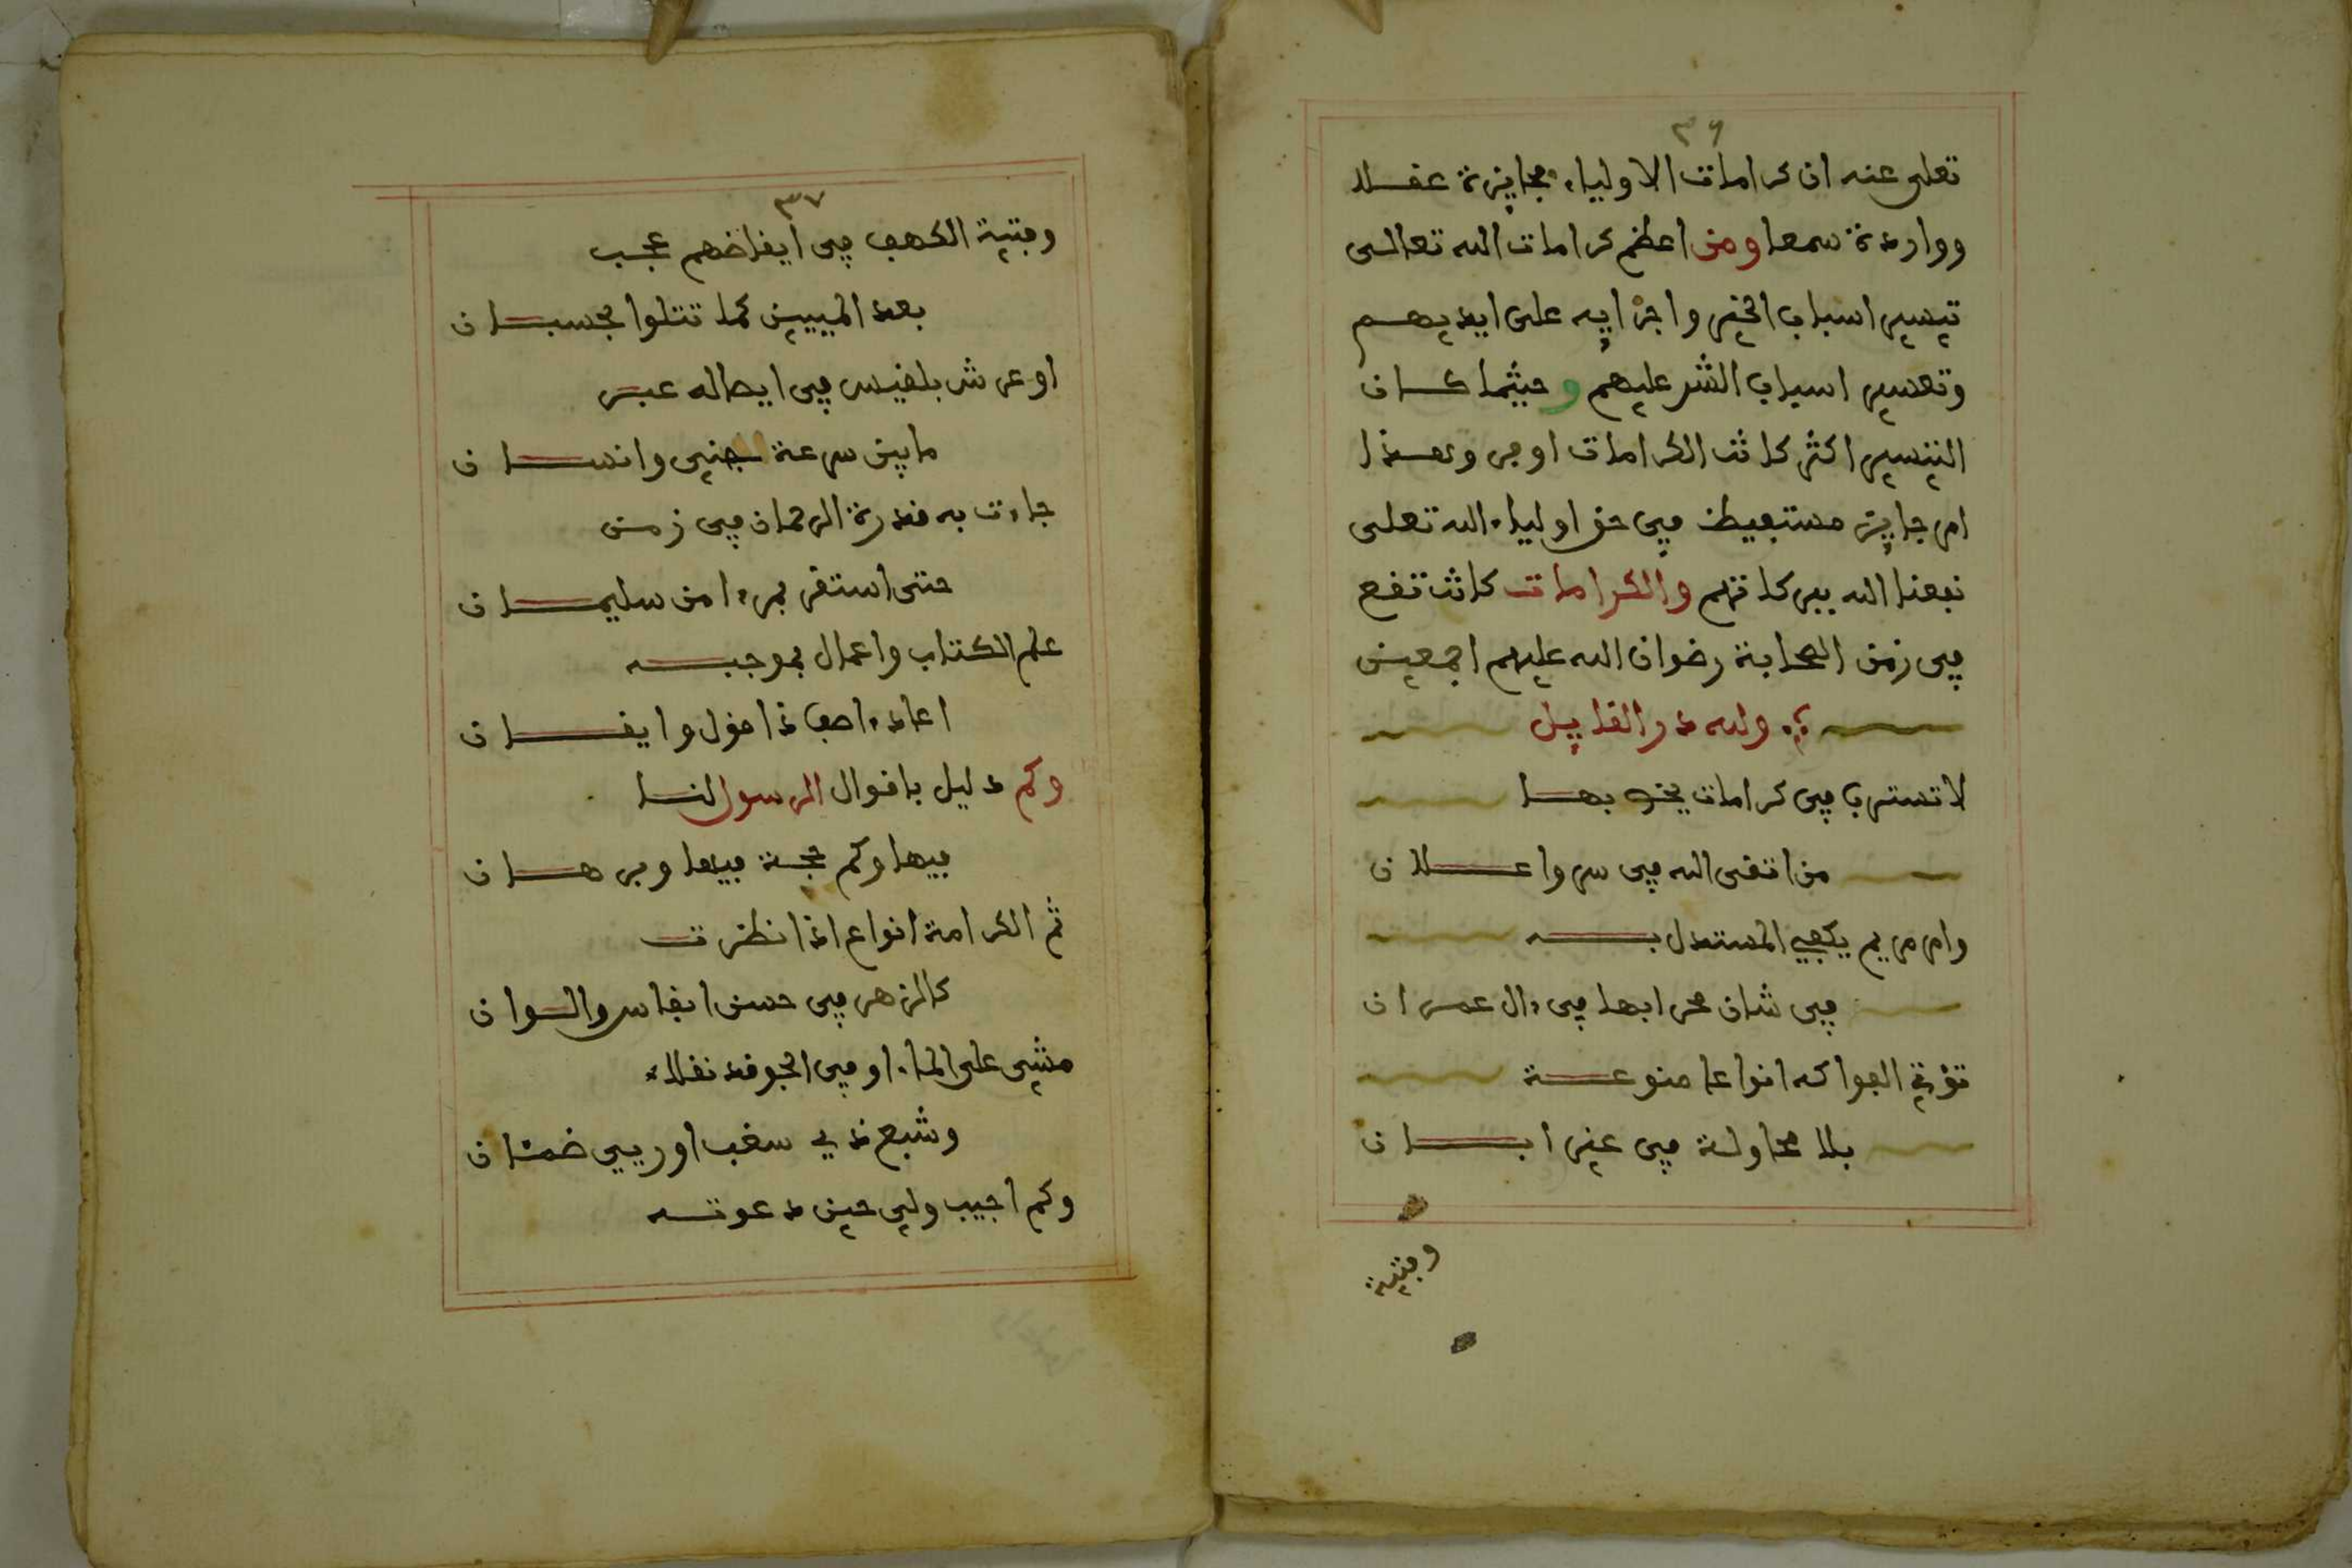 ٣٦
تعلى عنه ان كرامات الاولياء مجايزة عقلا
وواردة سمعا ومن اعظم كرامات الله تعالى
تيسير اسباب الخير واجرايه على ايديهم
وتعسير اسباب الشر عليهم وحيثما كان
التيسير اكثر كانت الكرامات اوفر وهذا
امر جايز مستفيض في حق اولياء الله تعلى
نفعنا الله ببركاتهم والكرامات كانت تقع
في زمن الصحابة رضوان الله عليهم اجمعين
ولله در القايل
لا تسترب في كرامات يخص بها
من اتقى الله في سر واعلان
وامر مريم يكفي المستدل به
في شان محرابها في ءال عمران
تؤتى الفواكه انواعا منوعة
بلا محاولة في غير ابان
وفتية
٣٧
وفتية الكهف في ايقاضهم عجب
بعد الميين كما تتلوا بحسبان
او عرش بلقيس في ايصاله عبر
ما بين سرعة جني وانسان
جاءت به قدرة الرحمان في زمن
حتى استقر بمرءا من سليمان
علم الكتاب واعمال بموجبه
اعاد ءاصف ذا قول وايقان
وكم دليل باقوال الرسول لنا
فيها وكم حجة فيها وبرهان
ثم الكرامة انواع اذا نظرت
كالزهر في حسن انفاس والوان
مشي على الماء او في الجو قد نقلا
وشبع ذي سغب او ريي ضمئان
وكم اجيب ولي حين دعوته